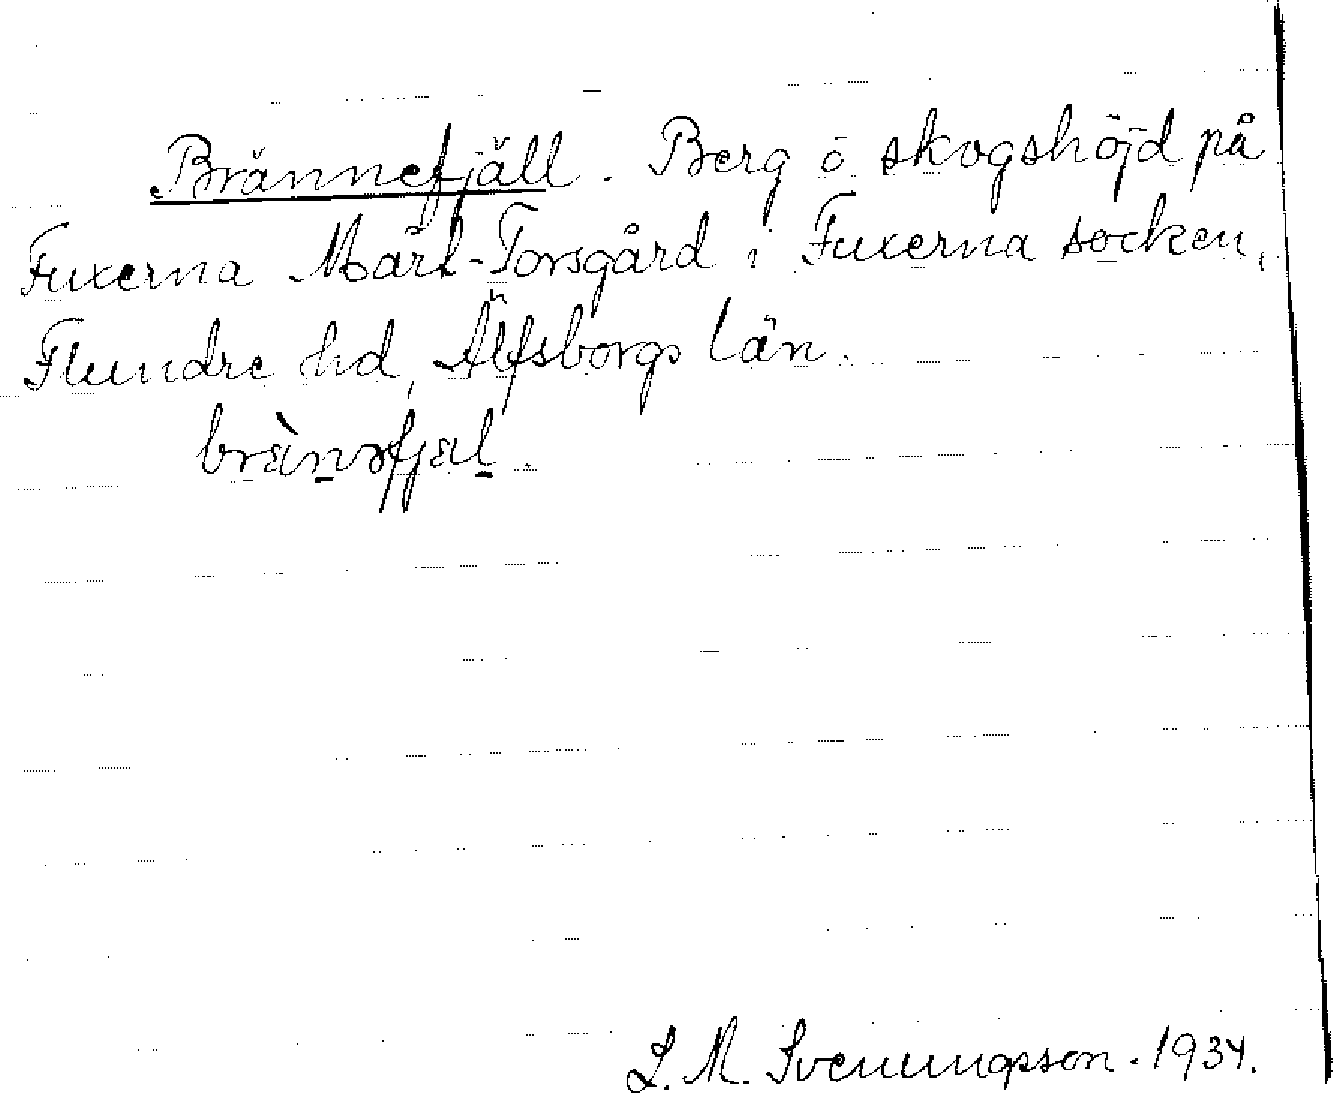 Brännefjäll. Berg o skogshöjd på
Fuxerna Mårk-Torsgård i Fuxerna socken,
Flundre hd, Älfsborgs län.
brä̀nəfjäl.
J. M. Svenningsson. 1934.